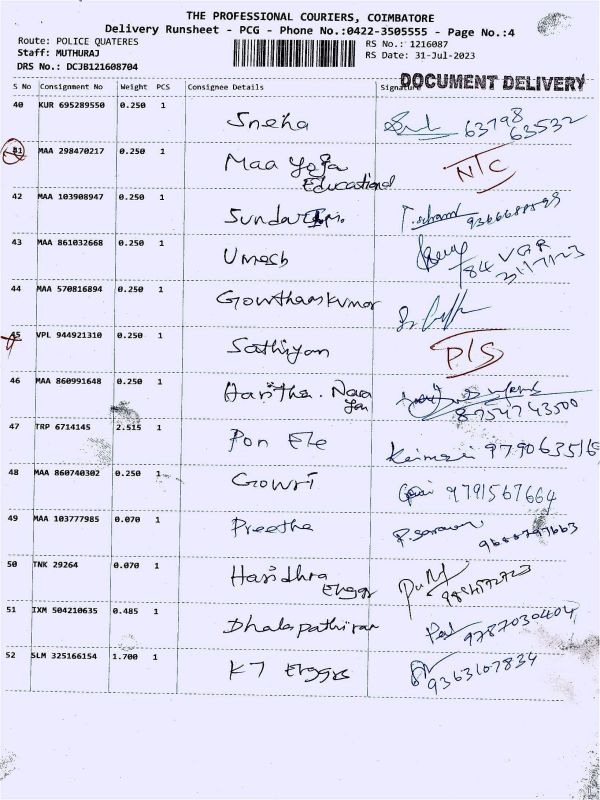 THE PROFESSIONAL COURIERS, COIMBATORE
Delivery Runsheet - PCG - Phone No.:0422-3505555 - Page No.:4
Route: POLICE QUATERES
RS No.: 1216087
Staff: MUTHURAJ
RS Date: 31-Jul-2023
DRS No.: DCJB121608704
DOCUMENT DELIVERY
S No Consignment No Weight PCS Consignee Details Signature
40 KUR 695289550 0.250 1 Sneha 63798
63532
MAA 298470217 0.250 1 Maa Yoga N/C
Educational
42 MAA 103908947 0.250 1
43 MAA 861032668 0.250 1 Umesh
31/7/23
44 MAA 570816894 0.250 1 Gowthamkumar
45 VPL 944921310 0.250 1 Sathiyan D/S
46 MAA 860991648 0.250 1 Haritha. Nara
yan 8754743500
47 TRP 6714145 2.515 1 Pon Ele 9790635516
48 MAA 860740302 0.250 1 Gowri 9791567664
49 MAA 103777985 0.070 1 Preetha
50 TNK 29264 0.070 1 Haridhra
Enggs
51 IXM 504210635 0.485 1 Dhalapathiran 9787030404
52 SLM 325166154 1.700 1 KT Enggs 9363107834